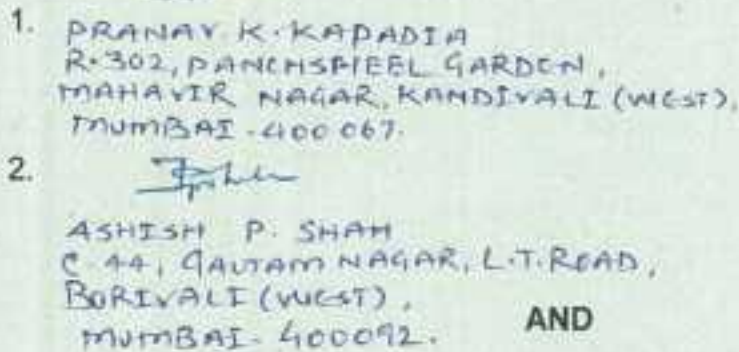 1. PRANAV K. KAPADIA
R-302, PANCHSHEEL GARDEN,
MAHAVIR NAGAR, KANDIVALI (WEST),
MUMBAI - 400 067.
2.
ASHISH P. SHAH
C-44, GAUTAM NAGAR, L.T. ROAD,
BORIVALI (WEST),
MUMBAI - 400092.
AND